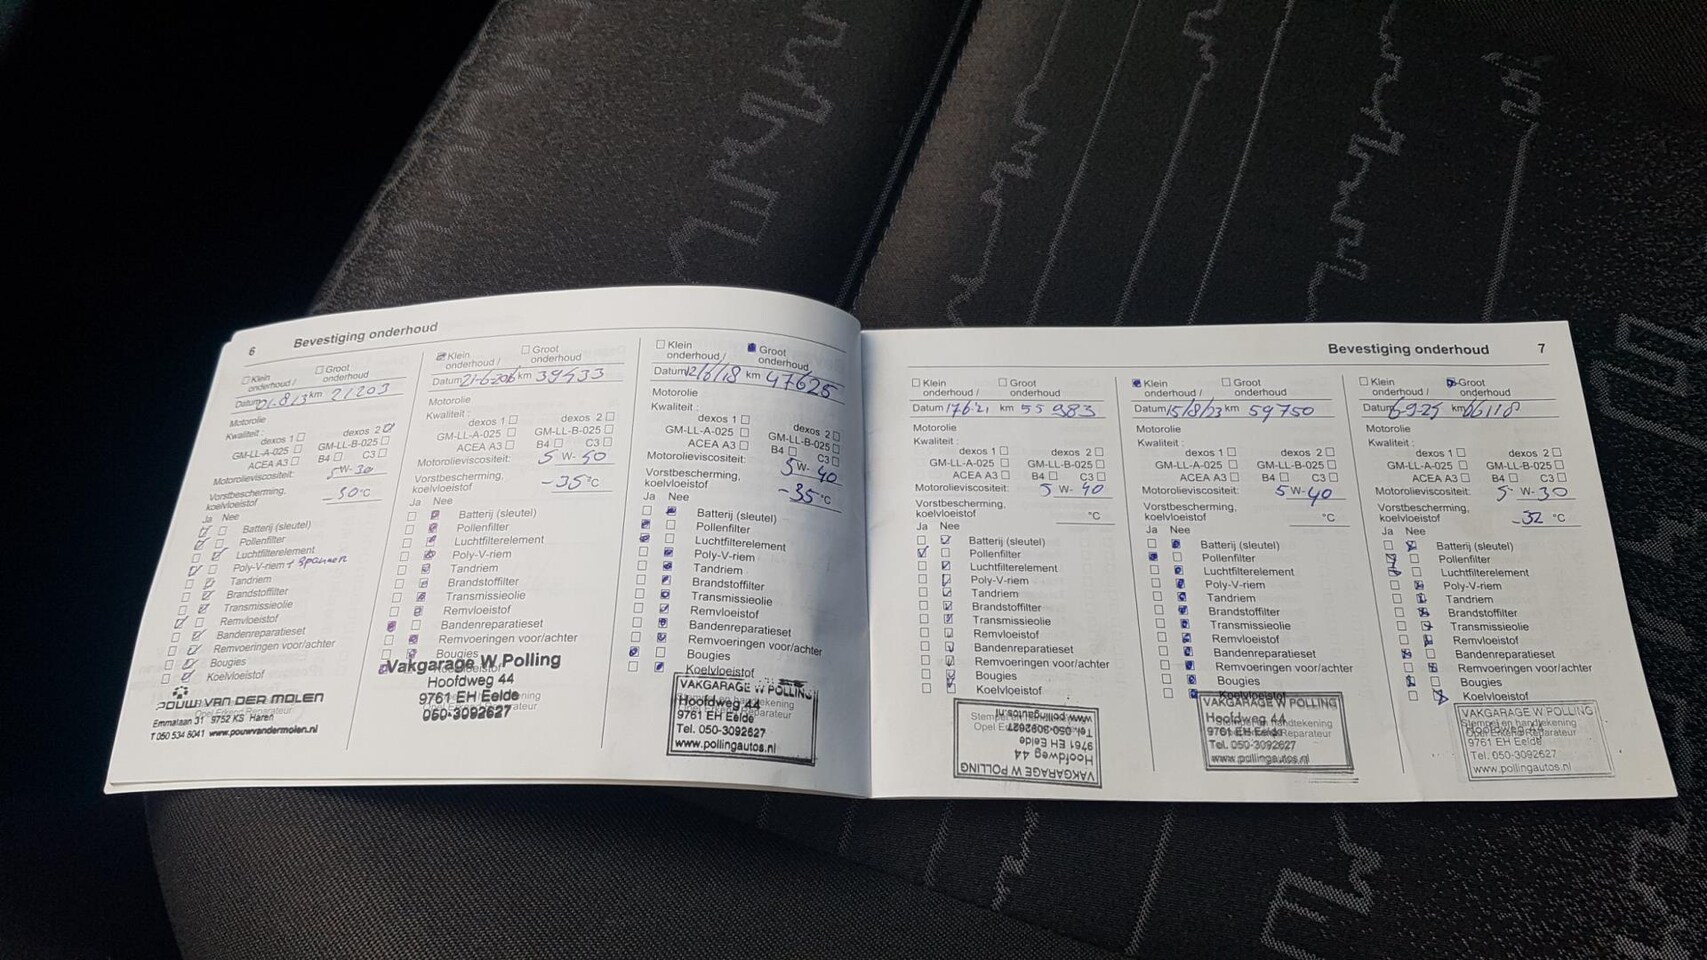 6 Bevestiging onderhoud
Klein onderhoud / Groot onderhoud
Datum 01.8/13 km 21203
Motorolie
Kwaliteit :
dexos 1 dexos 2
GM-LL-A-025 GM-LL-B-025
ACEA A3 B4 C3
Motorolieviscositeit: 5 W- 30
Vorstbescherming,
koelvloeistof -30 °C
Ja Nee
Batterij (sleutel)
Pollenfilter
Luchtfilterelement
Poly-V-riem + spanner
Tandriem
Brandstoffilter
Transmissieolie
Remvloeistof
Bandenreparatieset
Remvoeringen voor/achter
Bougies
Koelvloeistof
POUW VAN DER MOLEN
Opel Erkend Reparateur
Emmalaan 31 9752 KS Haren
T 050 534 8041 www.pouwvandermolen.nl
Klein onderhoud / Groot onderhoud
Datum 21-6-2016 km 39433
Motorolie
Kwaliteit :
dexos 1 dexos 2
GM-LL-A-025 GM-LL-B-025
ACEA A3 B4 C3
Motorolieviscositeit: 5 W- 50
Vorstbescherming,
koelvloeistof -35 °C
Ja Nee
Batterij (sleutel)
Pollenfilter
Luchtfilterelement
Poly-V-riem
Tandriem
Brandstoffilter
Transmissieolie
Remvloeistof
Bandenreparatieset
Remvoeringen voor/achter
Bougies
Vakgarage W Polling
Hoofdweg 44
9761 EH Eelde
050-3092627
Klein onderhoud / Groot onderhoud
Datum 12/6/18 km 47625
Motorolie
Kwaliteit :
dexos 1 dexos 2
GM-LL-A-025 GM-LL-B-025
ACEA A3 B4 C3
Motorolieviscositeit: 5 W- 40
Vorstbescherming,
koelvloeistof -35 °C
Ja Nee
Batterij (sleutel)
Pollenfilter
Luchtfilterelement
Poly-V-riem
Tandriem
Brandstoffilter
Transmissieolie
Remvloeistof
Bandenreparatieset
Remvoeringen voor/achter
Bougies
Koelvloeistof
VAKGARAGE W POLLING
Hoofdweg 44
9761 EH Eelde
Tel. 050-3092627
www.pollingautos.nl
Bevestiging onderhoud 7
Klein onderhoud / Groot onderhoud
Datum 17 6.21 km 55 983
Motorolie
Kwaliteit :
dexos 1 dexos 2
GM-LL-A-025 GM-LL-B-025
ACEA A3 B4 C3
Motorolieviscositeit: 5 W- 40
Vorstbescherming,
koelvloeistof °C
Ja Nee
Batterij (sleutel)
Pollenfilter
Luchtfilterelement
Poly-V-riem
Tandriem
Brandstoffilter
Transmissieolie
Remvloeistof
Bandenreparatieset
Remvoeringen voor/achter
Bougies
Koelvloeistof
Stempel en handtekening
Opel Erkend Reparateur
VAKGARAGE W POLLING
Hoofdweg 44
9761 EH Eelde
Tel. 050-3092627
www.pollingautos.nl
Klein onderhoud / Groot onderhoud
Datum 15/8/23 km 59750
Motorolie
Kwaliteit :
dexos 1 dexos 2
GM-LL-A-025 GM-LL-B-025
ACEA A3 B4 C3
Motorolieviscositeit: 5 W- 40
Vorstbescherming,
koelvloeistof °C
Ja Nee
Batterij (sleutel)
Pollenfilter
Luchtfilterelement
Poly-V-riem
Tandriem
Brandstoffilter
Transmissieolie
Remvloeistof
Bandenreparatieset
Remvoeringen voor/achter
Bougies
Koelvloeistof
VAKGARAGE W POLLING
Hoofdweg 44
9761 EH Eelde
Tel. 050-3092627
www.pollingautos.nl
Klein onderhoud / Groot onderhoud
Datum 6-9-25 km 66118
Motorolie
Kwaliteit :
dexos 1 dexos 2
GM-LL-A-025 GM-LL-B-025
ACEA A3 B4 C3
Motorolieviscositeit: 5- W- 30
Vorstbescherming,
koelvloeistof -32 °C
Ja Nee
Batterij (sleutel)
Pollenfilter
Luchtfilterelement
Poly-V-riem
Tandriem
Brandstoffilter
Transmissieolie
Remvloeistof
Bandenreparatieset
Remvoeringen voor/achter
Bougies
Koelvloeistof
VAKGARAGE W POLLING
Stempel en handtekening
Hoofdweg 44
9761 EH Eelde
Tel. 050-3092627
www.pollingautos.nl